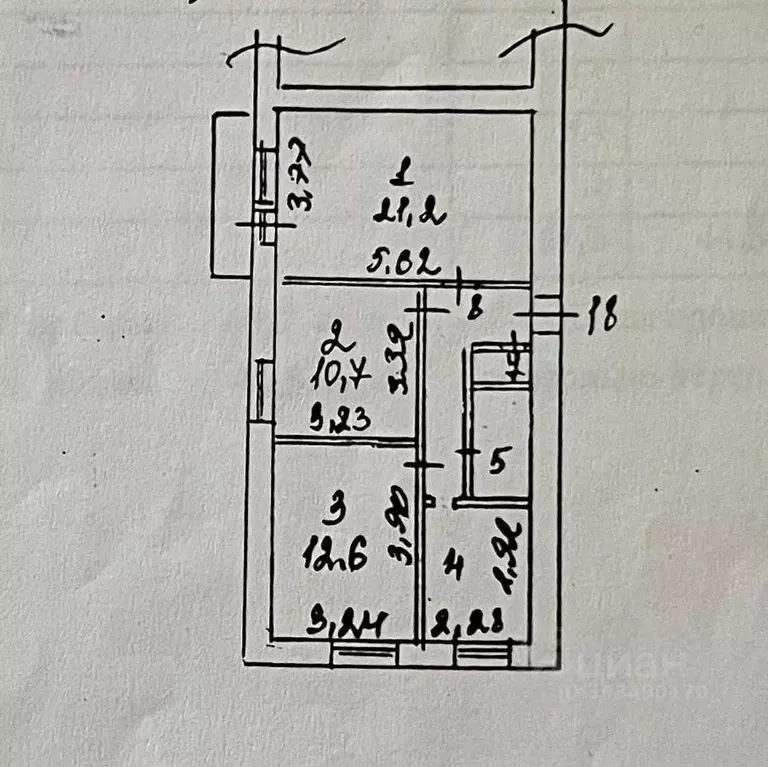 1
21,2
3,77
5,62
8
18
2
10,7
3,32
3,23
7
5
3
12.6
3,90
3,24
4
2,28
циан